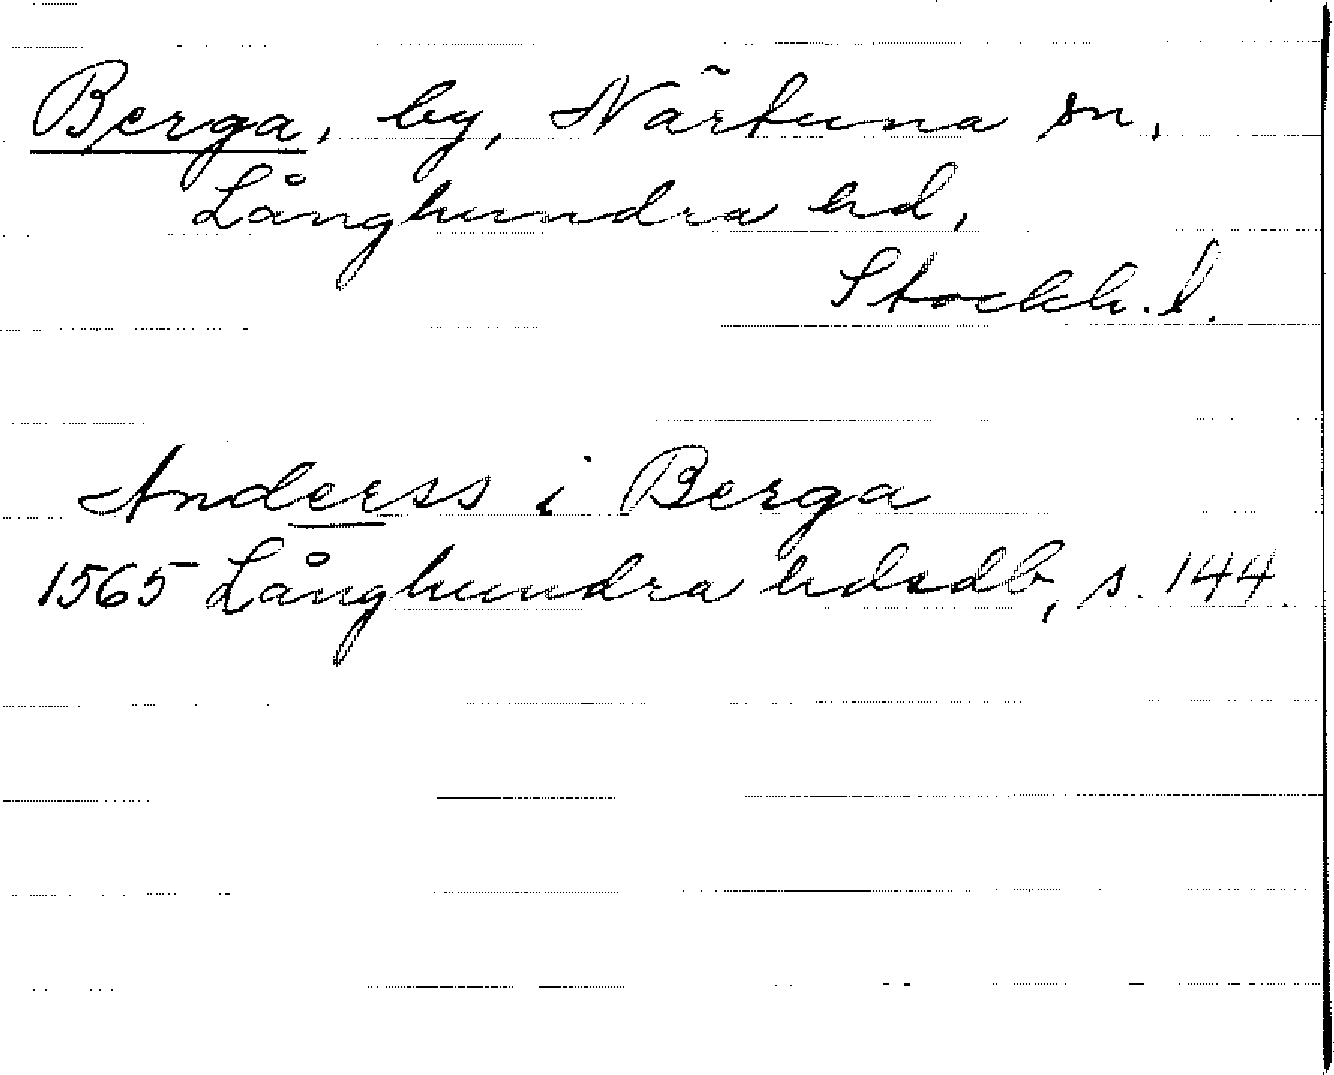 Berga, by, Närtuna sn,
Långhundra hd,
Stockh. l.
Anderss i Berga
1565 Långhundra hdsdb, s. 144.